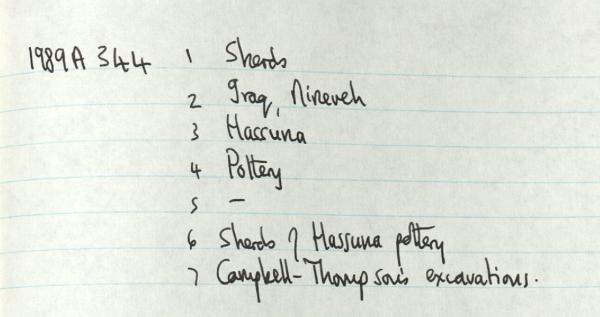 1989A 344 1 Sherds
2 Iraq, Nineveh
3 Hassuna
4 Pottery
5 -
6 Sherds of Hassuna pottery
7 Campbell-Thompson's excavations.